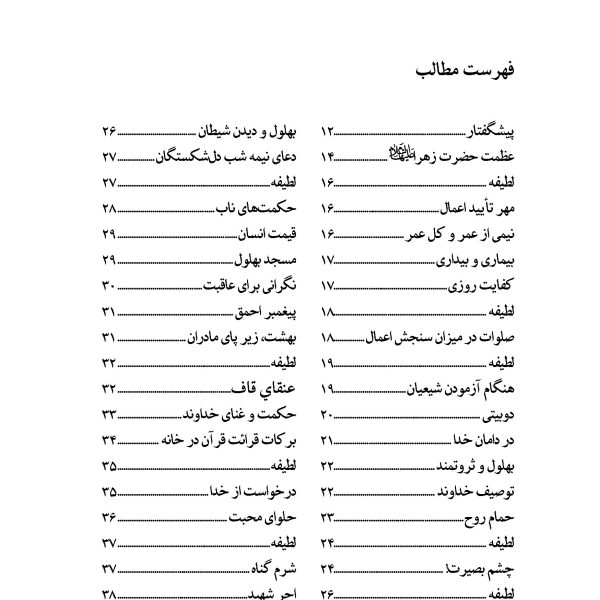 فهرست مطالب
پیشگفتار ۱۲
عظمت حضرت زهرا ۱۴
لطیفه ۱۶
مهر تأیید اعمال ۱۶
نیمی از عمر و کل عمر ۱۶
بیماری و بیداری ۱۷
کفایت روزی ۱۷
لطیفه ۱۸
صلوات در میزان سنجش اعمال ۱۸
لطیفه ۱۹
هنگام آزمودن شیعیان ۱۹
دوبیتی ۲۰
در دامان خدا ۲۱
بهلول و ثروتمند ۲۲
توصیف خداوند ۲۲
حمام روح ۲۳
لطیفه ۲۴
چشم بصیرت! ۲۴
لطیفه ۲۶
بهلول و دیدن شیطان ۲۶
دعای نیمه شب دل‌شکستگان ۲۷
لطیفه ۲۷
حکمت‌های ناب ۲۸
قیمت انسان ۲۹
مسجد بهلول ۲۹
نگرانی برای عاقبت ۳۰
پیغمبر احمق ۳۱
بهشت، زیر پای مادران ۳۱
لطیفه ۳۲
عنقاي قاف ۳۲
حکمت و غنای خداوند ۳۳
برکات قرائت قرآن در خانه ۳۴
لطیفه ۳۵
درخواست از خدا ۳۵
حلوای محبت ۳۶
لطیفه ۳۷
شرم گناه ۳۷
اجر شهید ۳۸